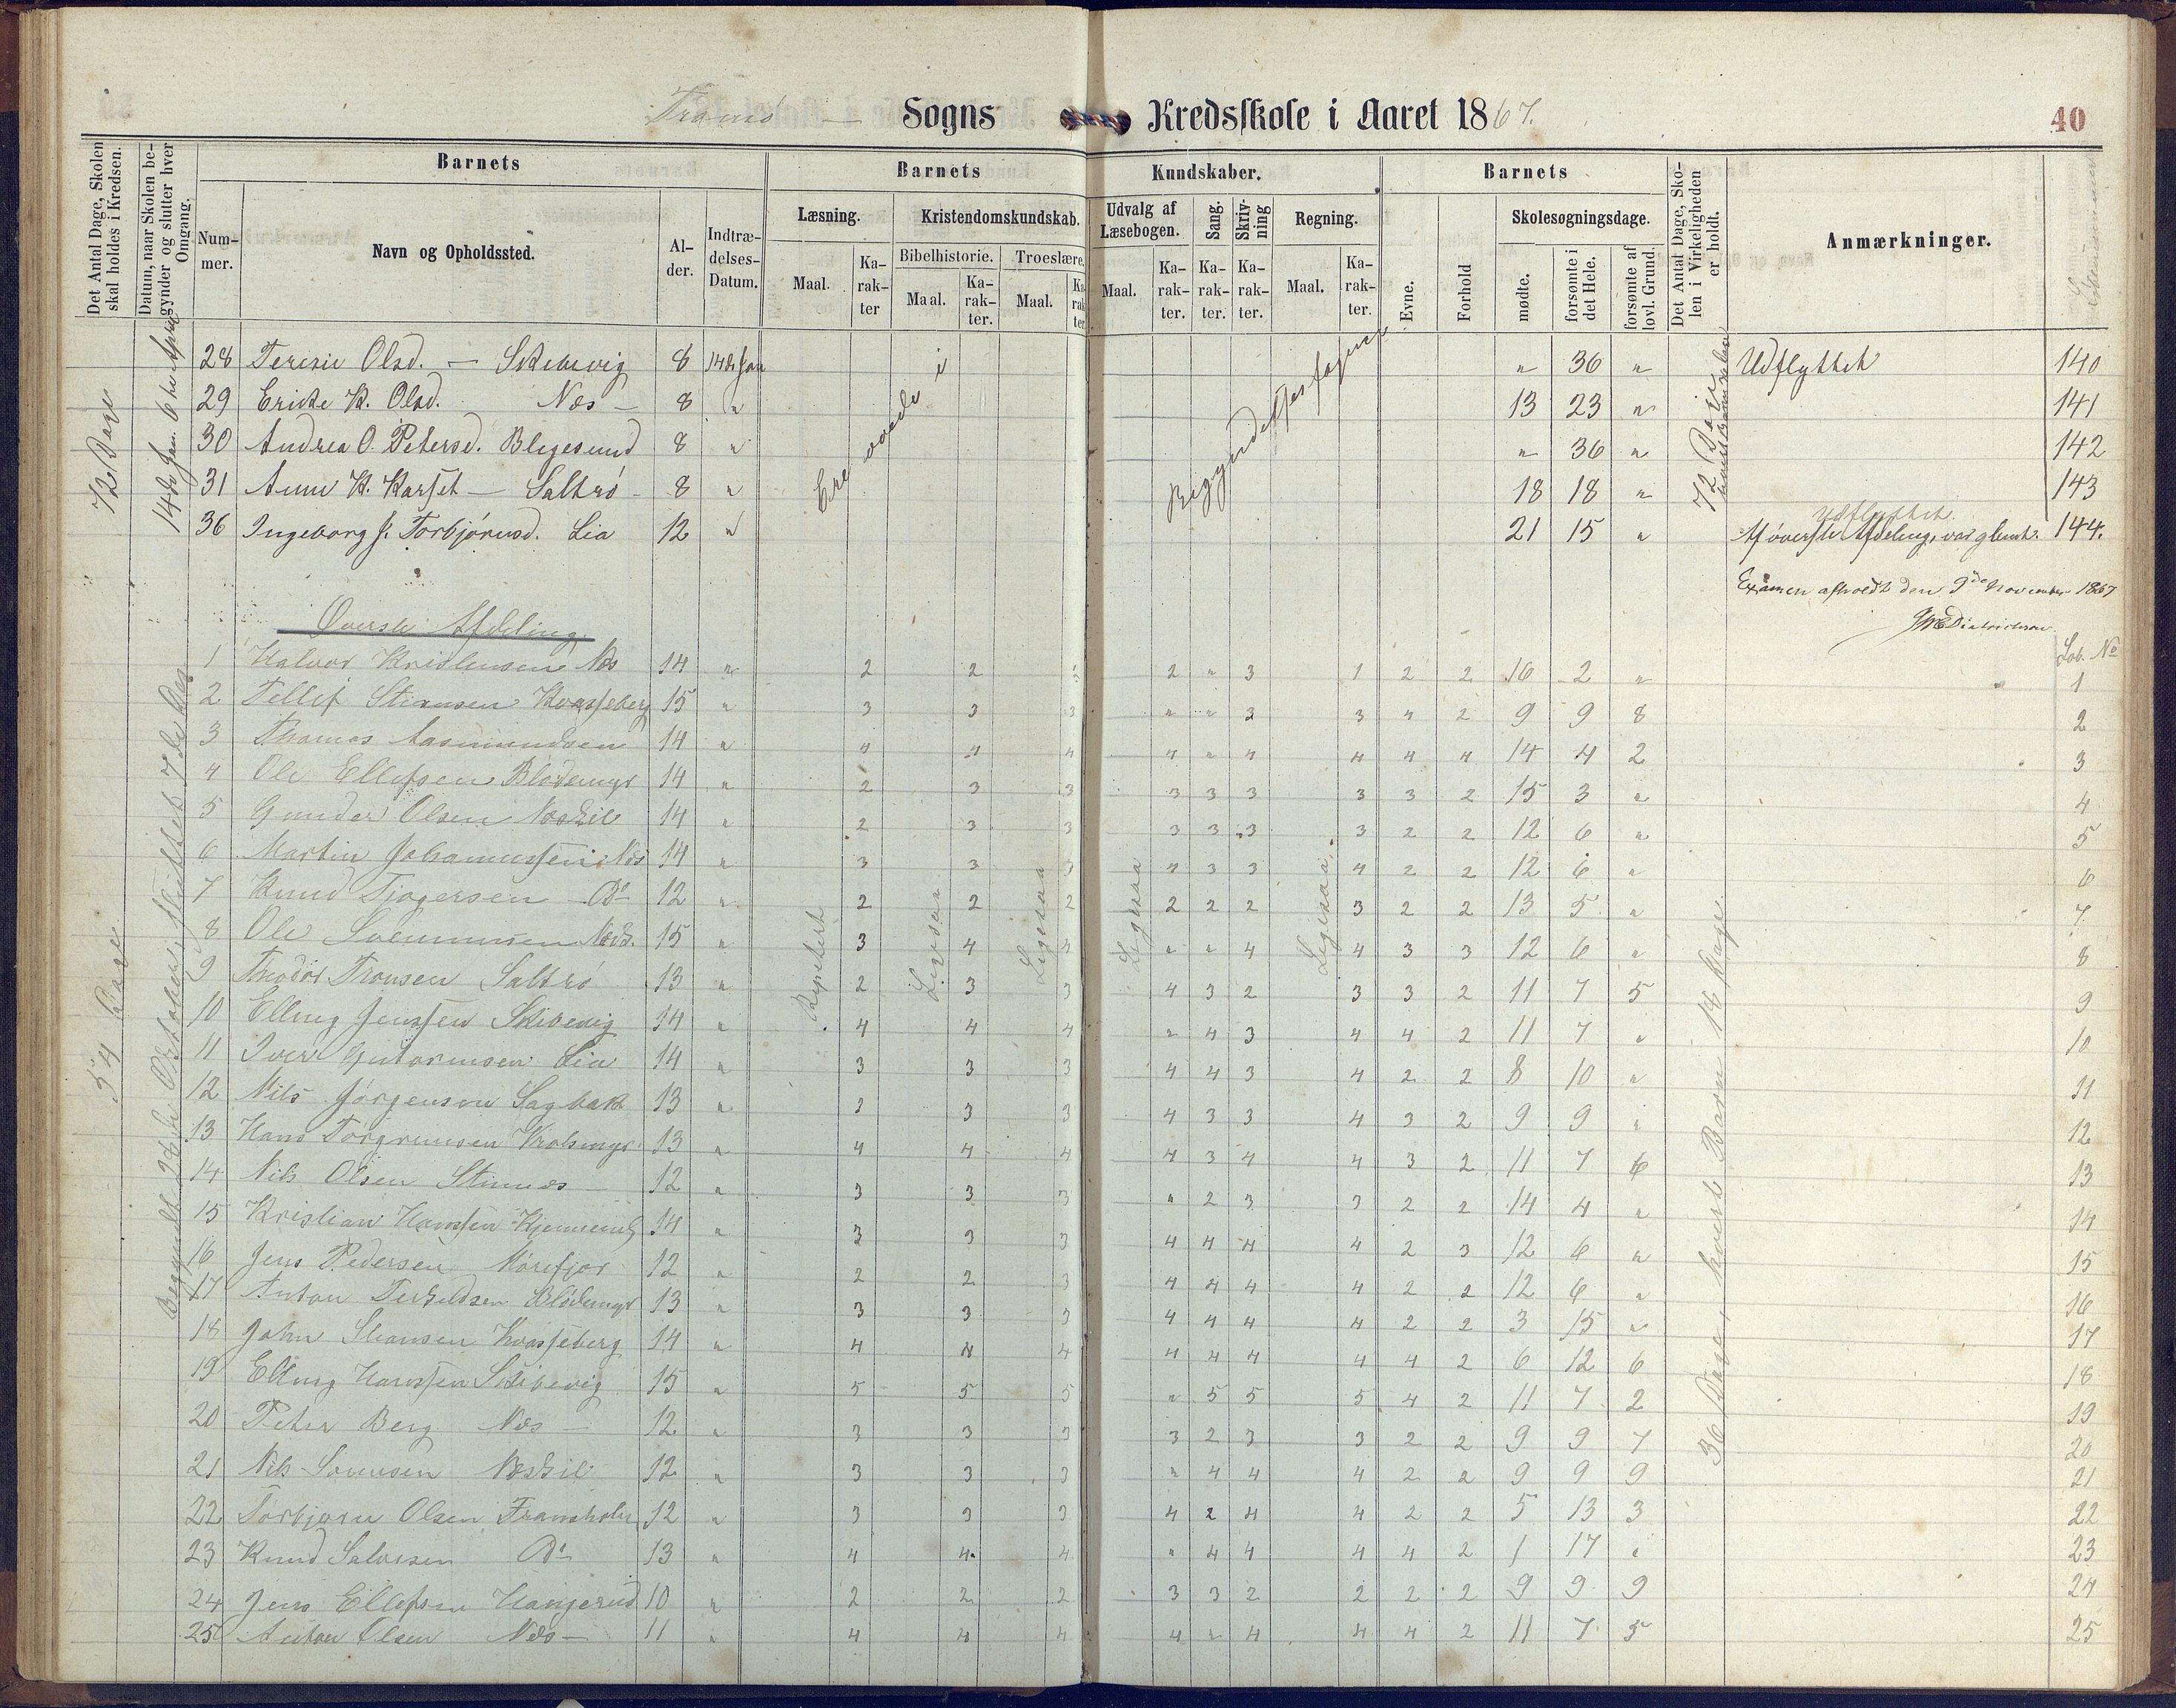 Tromö — Sogns Kredsskole i Aaret 1867. 40
Det Antal Dage, Skolen skal holdes i Kredsen.
Datum, naar Skolen begynder og slutter hver Omgang.
Barnets
Barnets Kundskaber.
Barnets
Det Antal Dage, Skolen i Virkeligheden er holdt.
Anmærkninger.
Nummer.
Navn og Opholdssted.
Alder.
Indtrædelses-Datum.
Læsning.
Kristendomskundskab.
Bibelhistorie.
Troeslære.
Udvalg af Læsebogen.
Sang.
Skrivning
Regning.
Evne.
Forhold
Skolesøgningsdage.
mødte.
forsømte i det Hele.
forsømte af lovl. Grund.
Maal. Karakter Maal. Karakter. Maal. Karakter. Maal. Karakter. Karakter. Karakter. Maal. Karakter.
72 Dage
14de Jan. 6te April
Ere øvede i Begyndelsesfagene
72 Dage
28 Teresie Olsd. — Skibevig 8 14de Jan " 36 " Udflyttet 140
29 Ericke K. Olsd. Næs — 8 " 13 23 " 141
30 Andrea O. Petersd. Blegesund 8 " " 36 " 142
31 Anne K. Karset — Saltrö — 8 " 18 18 " 143
Udflyttet
36 Ingeborg J. Torbjörnsd. Lia 12 " 21 15 " Af överste Afdeling, var glemt. 144.
Examen afholdt den 9de November 1867
Överste Afdeling.
Löb. No
54 Dage
Begyndt 28de Oktober, sluttet 7de Dec
Repetert
Ligesaa
Ligesaa
Ligesaa
Ligesaa
36 Dage, hvert Barn 18 Dage.
1 Halvor Kristensen Næs 14 " 2 2 2 2 " 3 1 2 2 16 2 " 1
2 Tellef Stiansen Kvasseberg 15 " 3 3 3 " " 3 3 4 2 9 9 8 2
3 Thomas Aasmundsen 14 " 4 4 4 4 " 4 4 4 4 14 4 2 3
4 Ole Ellefsen Blödemyr 14 " 2 3 3 3 3 3 3 3 2 15 3 " 4
5 Gunder Olsen Næskil 14 " 2 3 3 3 3 3 3 2 2 12 6 " 5
6 Martin Johannessen Næs 14 " 3 3 3 4 3 3 4 2 2 12 6 " 6
7 Knud Tjögersen Do 12 " 2 2 2 2 2 2 3 2 2 13 5 " 7
8 Ole Svennumsen Næsk. 15 " 3 4 4 " " 4 4 3 3 12 6 " 8
9 Theodor Tronsen Saltrö 13 " 2 3 3 4 3 2 3 3 2 11 7 5 9
10 Elling Jenssen Skibevig 14 " 4 4 4 " 4 3 4 4 2 11 7 " 10
11 Iver Gutormsen Lia 14 " 3 3 3 4 4 3 4 2 2 8 10 " 11
12 Nils Jörgenson Sagbak 13 " 2 3 3 4 3 3 4 3 2 9 9 " 12
13 Hans Torgrimsen 13 " 4 4 4 4 3 4 4 3 2 11 7 6 13
14 Nils Olsen Stinnæs — 12 " 3 3 3 " 2 3 3 2 2 14 4 " 14
15 Kristian Hanssen 14 " 3 3 3 4 4 4 4 2 3 12 6 " 15
16 Jens Pedersen Mörefjær 12 " 2 2 3 4 4 4 4 2 2 12 6 " 16
17 Anton Terkeldsen Blödemyr 13 " 3 3 3 4 4 4 4 2 2 3 15 " 17
18 John Stiansen Kvasseberg 14 " 4 4 4 4 4 4 4 4 2 6 12 6 18
19 Elling Hanssen Skibevig 15 " 5 5 5 " 5 5 5 4 2 11 7 2 19
20 Peter Berg Næs — 12 " 3 3 3 3 2 3 3 2 2 9 9 7 20
21 Nils Sörensen Næskil 12 " 3 3 3 " 4 4 4 2 2 9 9 9 21
22 Torbjörn Olsen Framholm 12 " 3 3 3 4 2 4 4 2 2 5 13 3 22
23 Knud Salvesen Do 13 " 4 4 4 " 4 4 4 4 2 1 17 " 23
24 Jens Ellefsen Hangerud 10 " 2 2 2 3 3 2 2 2 2 9 9 9 24
25 Anton Olsen Næs — 11 " 4 4 4 4 " 4 4 4 2 11 7 5 25